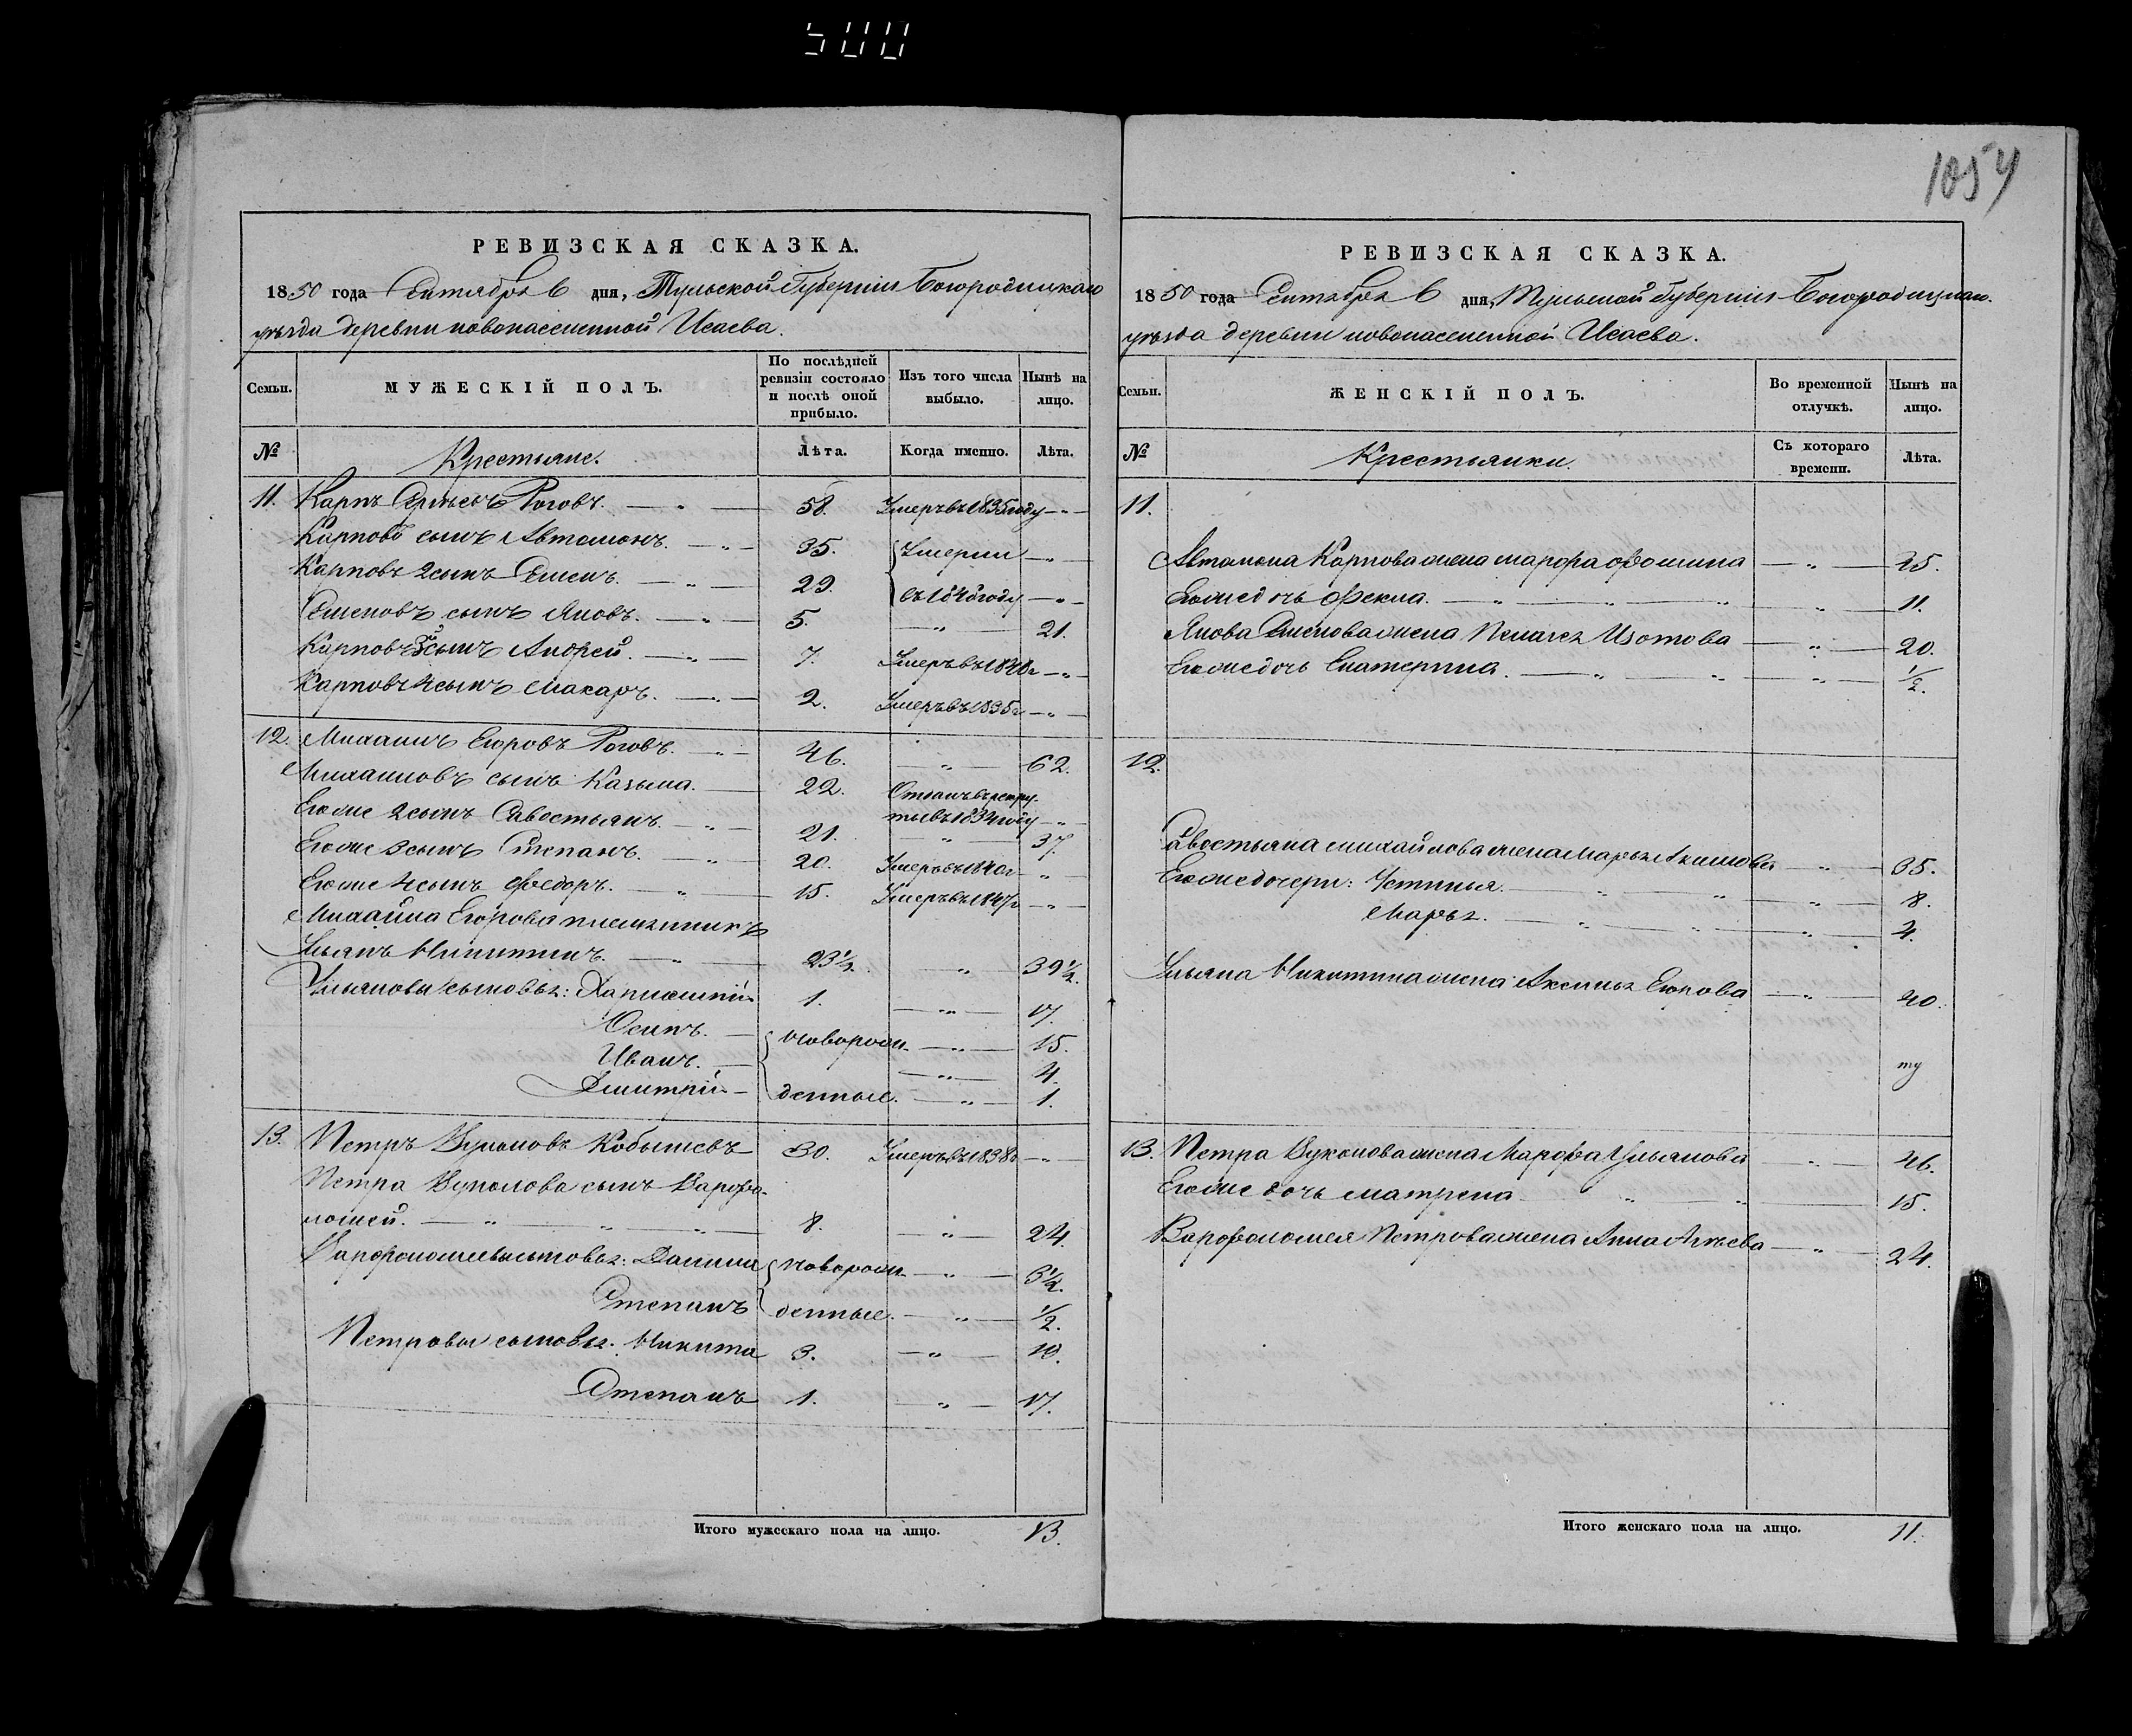 500
1054
РЕВИЗСКАЯ СКАЗКА.
1850 года Сентября 6 дня, Тульской Губернии Богородицкаго
уѣзда деревни новонаселенной Исаева.
Семьи.
МУЖЕСКІЙ ПОЛЪ.
По послѣдней ревизіи состояло и послѣ оной прибыло.
Изъ того числа выбыло.
Нынѣ на лицо.
№
Крестьяне.
Лѣта.
Когда именно.
Лѣта.
11. Карпъ Роговъ. 58. Умеръ въ 1835 году
Карповъ сынъ Автомонъ. 35. Умерли
Карповъ 2 сынъ Семенъ. 29. въ 1848 году
Семеновъ сынъ Яковъ. 5. 21.
Карповъ 3й сынъ Андрей. 7. Умеръ въ 1848г
Карповъ 4 сынъ Макаръ. 2. Умеръ въ 1835г
12. Михаилъ Егоровъ Роговъ. 46. 62.
Михаиловъ сынъ Казьма. 22. Отданъ въ рекру-
ты въ 1834 году
Егоже 2 сынъ Савостьянъ. 21. 37.
Егоже 3 сынъ Степанъ. 20. Умеръ въ 1840г
Егоже 4 сынъ Федоръ. 15. Умеръ въ 1847г
Михайла Егорова племянникъ
Ульянъ Никитинъ. 23½. 39½.
Ульяновы сыновья: Харлампій 1. 17.
Осипъ. новорож- 15.
Иванъ. 4.
Дмитрій денные. 1.
13. Петръ Вуколовъ Кобылевъ 30. Умеръ въ 1838г
Петра Вуколова сынъ Варфо-
ломей. 8. 24.
Варфоломеевы сыновья: Данила новорож- 3½.
Степанъ денные. ½.
Петровы сыновья: Никита 3. 19.
Степанъ 1. 17.
Итого мужескаго пола на лицо. 13.
РЕВИЗСКАЯ СКАЗКА.
1850 года Сентября 6 дня, Тульской Губернии Богородицкаго
уѣзда деревни новонаселенной Исаева.
Семьи.
ЖЕНСКІЙ ПОЛЪ.
Во временной отлучкѣ.
Нынѣ на лицо.
№
Крестьянки.
Съ котораго времени.
Лѣта.
11.
Автомона Карпова жена Марфа Фомина 25.
Егоже дочь Фекла. 11.
Якова Семенова жена Пелагея Изотова 20.
Егоже дочь Екатерина. ½.
12.
Савостьяна Михайлова жена Марья Акимова 35.
Егоже дочери: Устинья 8.
Марья. 4.
Ульяна Никитина жена Аксинья Егорова 40.
13. Петра Вуколова жена Марфа Ульянова 46.
Егоже дочь Матрена 15.
Варфоломея Петрова жена Анна 24.
Итого женскаго пола на лицо. 11.